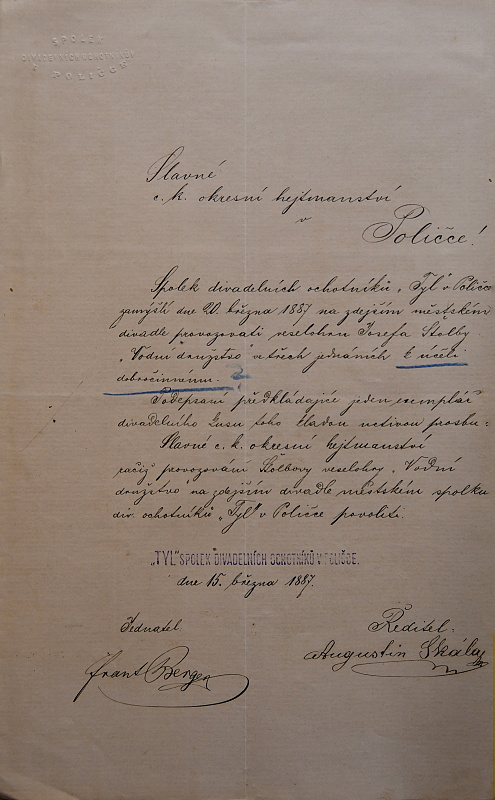 SPOLEK
DIVADELNÍCH OCHOTNÍKŮ
POLIČCE
Slavné
c. k. okresní hejtmanství
v
Poličce!
Spolek divadelních ochotníků „Tyl" v Poličce
zamýšlí dne 20. března 1887 na zdejším městském
divadle provozovati veselohru Josefa Štolby
„Vodní družstvo" ve třech jednáních k účeli
dobročinnému.
Podepsaní předkládajíce jeden exemplář
divadelního kusu toho kladou uctivou prosbu:
Slavné c. k. okresní hejtmanství
račiž provozování Štolbovy veselohry „Vodní
družstvo" na zdejším divadle městském spolku
div. ochotníků „Tyl" v Poličce povoliti.
„TYL" SPOLEK DIVADELNÍCH OCHOTNÍKŮ V POLIČCE.
dne 15. března 1887.
Jednatel:
Ředitel:
Frant. Berger
Augustin Skála